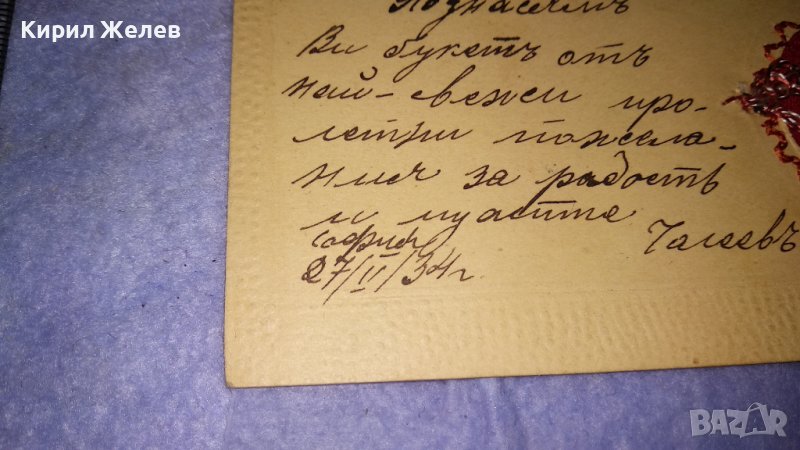 Кирил Желев
Поднасямъ
Ви букетъ отъ
най-свежи про-
летни пожела-
ния за радость
и щастие
София
27/II/34 г.
BAZAR